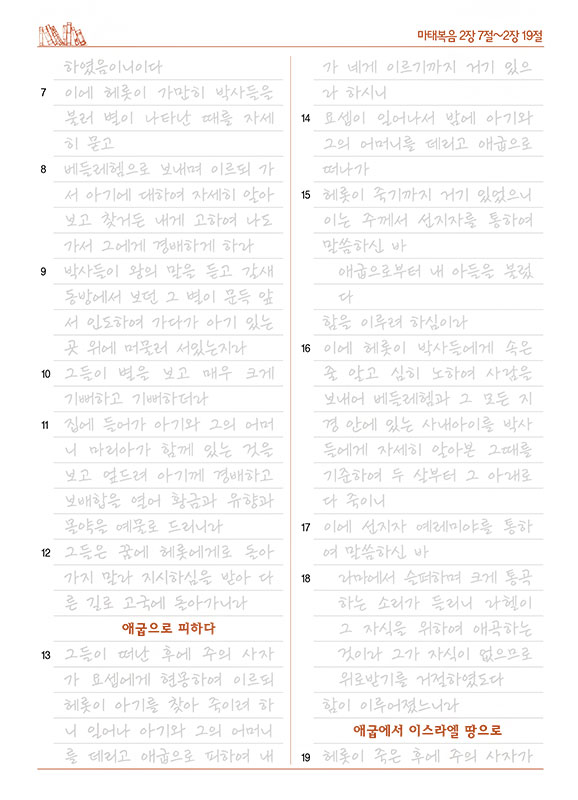 마태복음 2장 7절~2장 19절
하였음이니이다
7 이에 헤롯이 가만히 박사들을
불러 별이 나타난 때를 자세
히 묻고
8 베들레헴으로 보내며 이르되 가
서 아기에 대하여 자세히 알아
보고 찾거든 내게 고하여 나도
가서 그에게 경배하게 하라
9 박사들이 왕의 말을 듣고 갈새
동방에서 보던 그 별이 문득 앞
서 인도하여 가다가 아기 있는
곳 위에 머물러 서있는지라
10 그들이 별을 보고 매우 크게
기뻐하고 기뻐하더라
11 집에 들어가 아기와 그의 어머
니 마리아가 함께 있는 것을
보고 엎드려 아기께 경배하고
보배합을 열어 황금과 유향과
몰약을 예물로 드리니라
12 그들은 꿈에 헤롯에게로 돌아
가지 말라 지시하심을 받아 다
른 길로 고국에 돌아가니라
애굽으로 피하다
13 그들이 떠난 후에 주의 사자
가 요셉에게 현몽하여 이르되
헤롯이 아기를 찾아 죽이려 하
니 일어나 아기와 그의 어머니
를 데리고 애굽으로 피하여 내
가 네게 이르기까지 거기 있으
라 하시니
14 요셉이 일어나서 밤에 아기와
그의 어머니를 데리고 애굽으로
떠나가
15 헤롯이 죽기까지 거기 있었으니
이는 주께서 선지자를 통하여
말씀하신 바
애굽으로부터 내 아들을 불렀
다
함을 이루려 하심이라
16 이에 헤롯이 박사들에게 속은
줄 알고 심히 노하여 사람을
보내어 베들레헴과 그 모든 지
경 안에 있는 사내아이를 박사
들에게 자세히 알아본 그때를
기준하여 두 살부터 그 아래로
다 죽이니
17 이에 선지자 예레미야를 통하
여 말씀하신 바
18 라마에서 슬퍼하며 크게 통곡
하는 소리가 들리니 라헬이
그 자식을 위하여 애곡하는
것이라 그가 자식이 없으므로
위로받기를 거절하였도다
함이 이루어졌느니라
애굽에서 이스라엘 땅으로
19 헤롯이 죽은 후에 주의 사자가